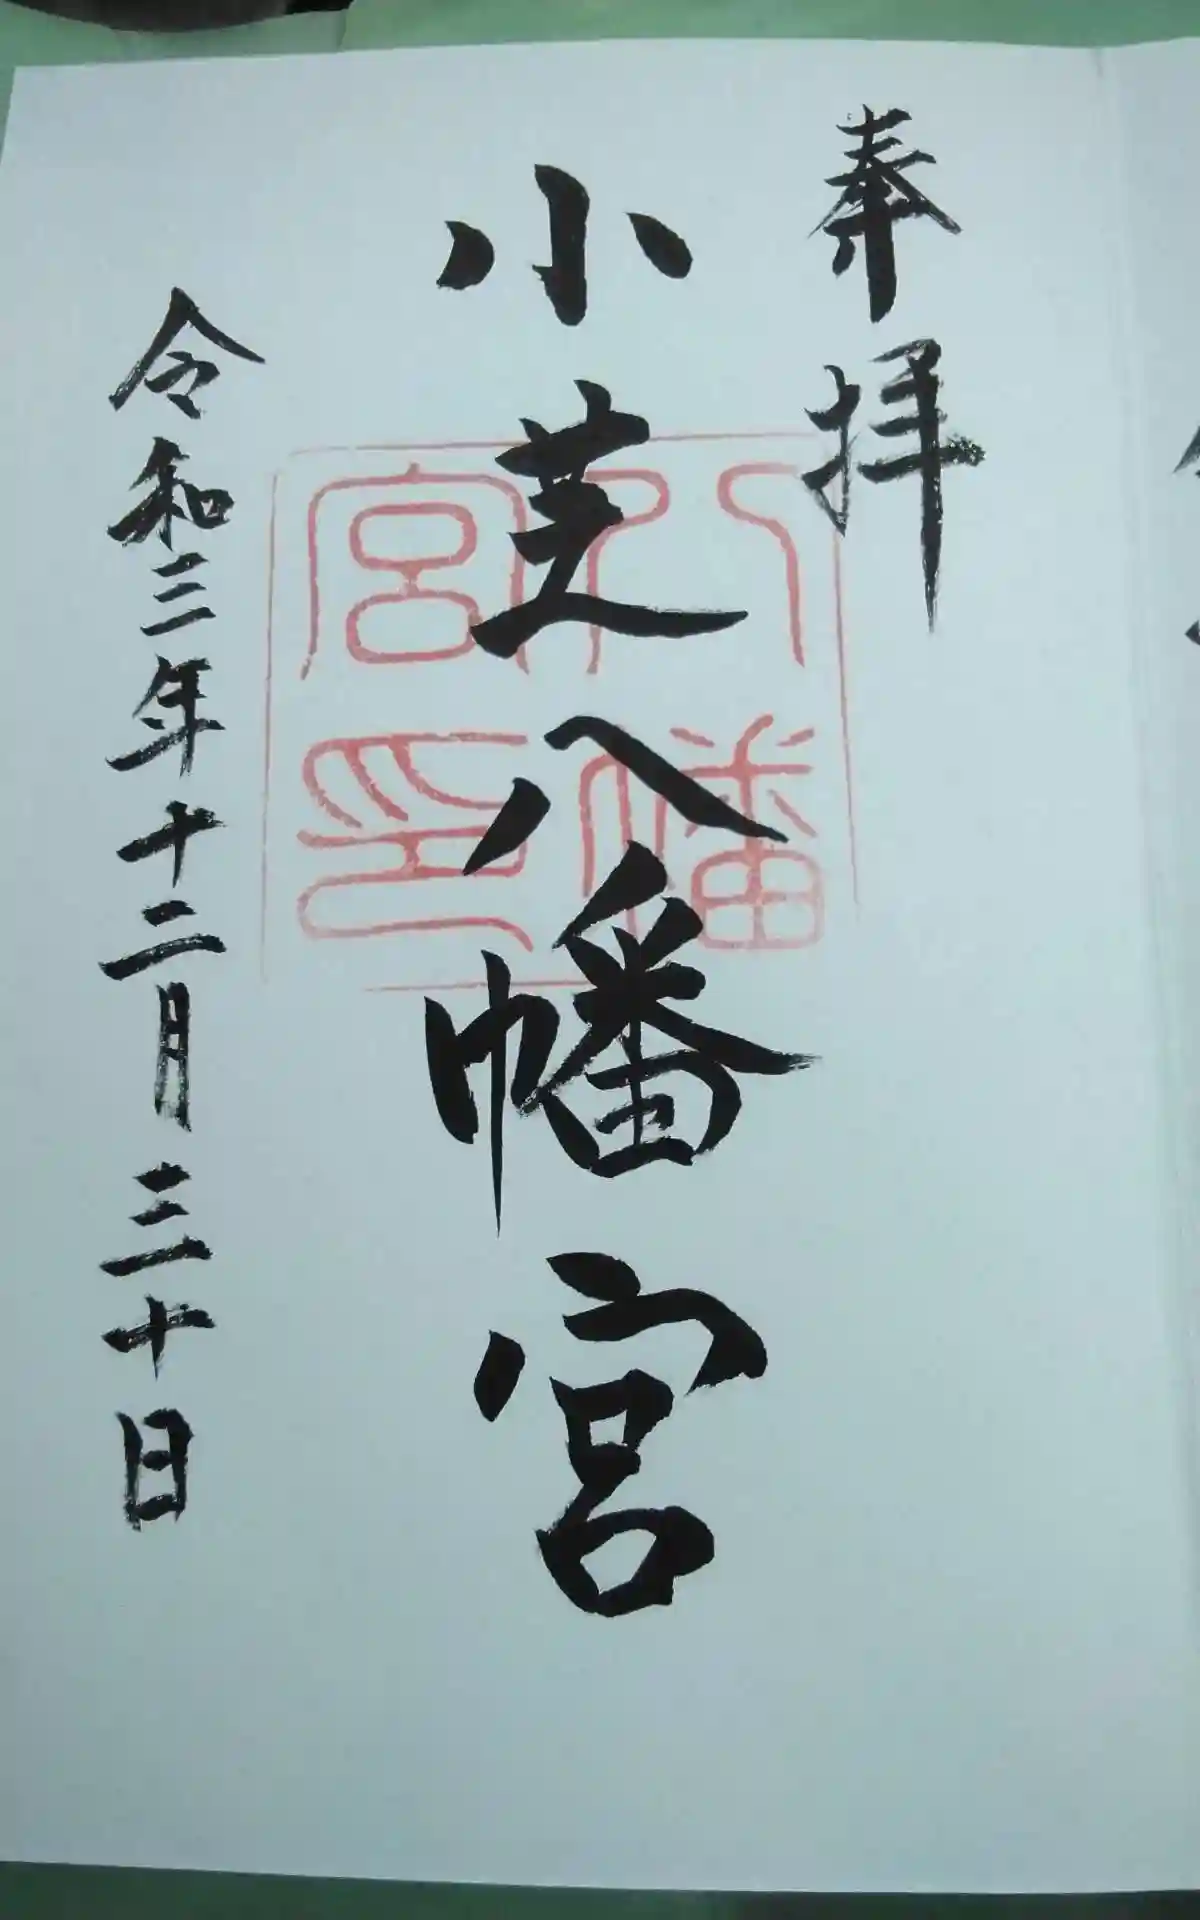 奉拝
小芝八幡宮
八幡宮印
令和三年十二月三十日